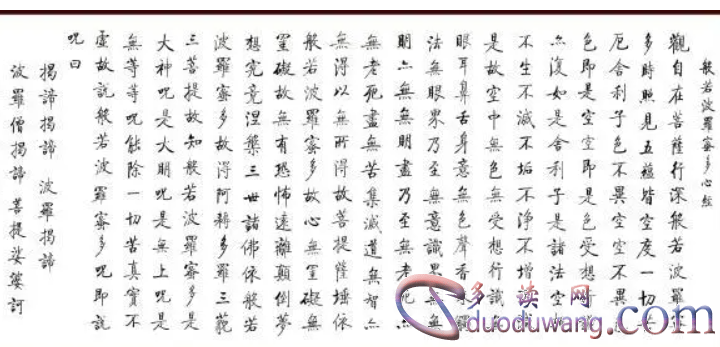 般若波羅蜜多心經
觀自在菩薩行深般若波羅蜜
多時照見五蘊皆空度一切苦
厄舍利子色不異空空不異色
色即是空空即是色受想行識
亦復如是舍利子是諸法空相
不生不滅不垢不淨不增不減
是故空中無色無受想行識無
眼耳鼻舌身意無色聲香味觸
法無眼界乃至無意識界無無
明亦無無明盡乃至無老死亦
無老死盡無苦集滅道無智亦
無得以無所得故菩提薩埵依
般若波羅蜜多故心無罣礙無
罣礙故無有恐怖遠離顛倒夢
想究竟涅槃三世諸佛依般若
波羅蜜多故得阿耨多羅三藐
三菩提故知般若波羅蜜多是
大神咒是大明咒是無上咒是
無等等咒能除一切苦真實不
虛故說般若波羅蜜多咒即說
咒曰
揭諦揭諦 波羅揭諦
波羅僧揭諦菩提娑婆訶
多读网
duoduwang.com